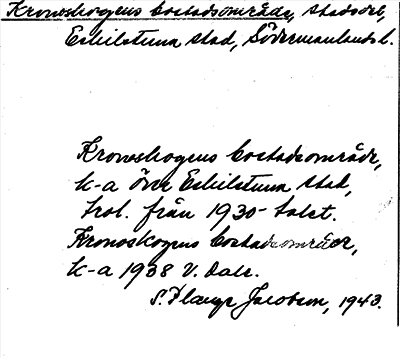 Kronskogens bostadsområde, stadsdel,
Eskilstuna stad, Södermanlands l.
Kronskogens bostadsområde,
k-a över Eskilstuna stad,
trol. från 1930-talet.
Kronoskogens bostadsområde,
k-a 1938 V. Dalr.
S. Plauge Jacobson, 1943.